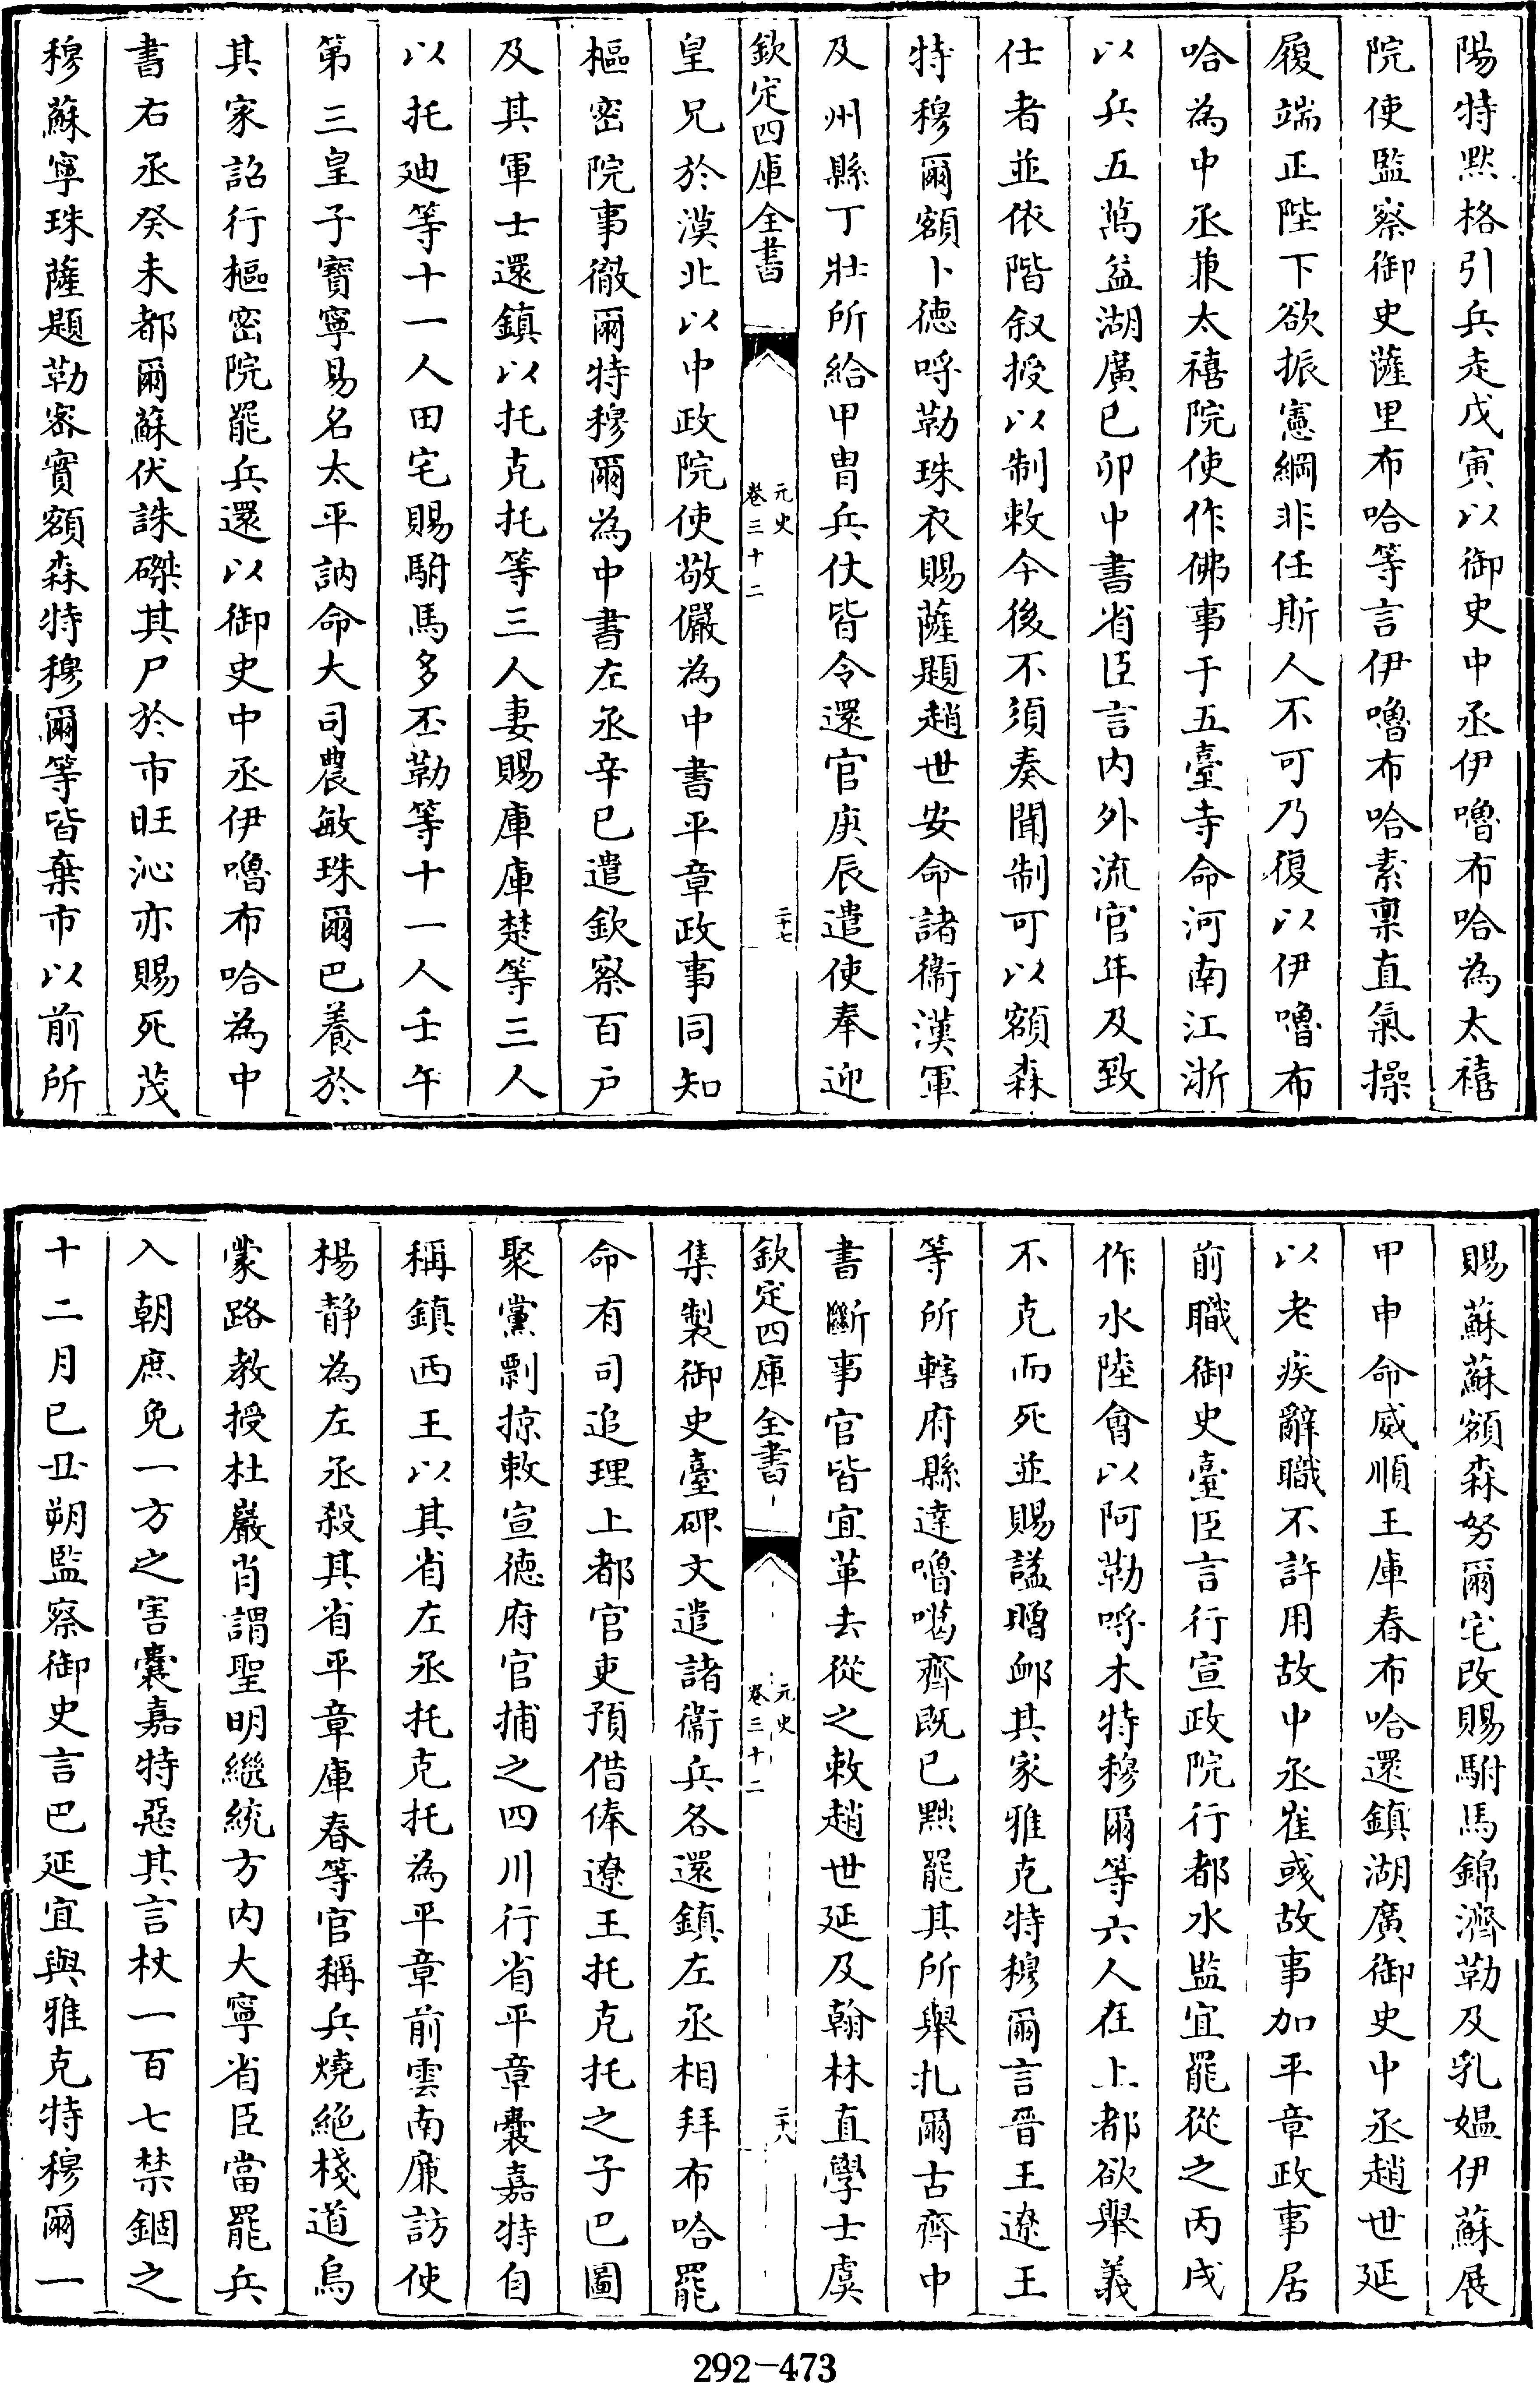 陽特黙格引兵走戊寅以御史中丞伊嚕布哈為太禧
院使監察御史薩里布哈等言伊嚕布哈素稟直氣操
履端正陛下欲振憲綱非任斯人不可乃復以伊嚕布
哈為中丞兼太禧院使作佛事于五臺寺命河南江浙
以兵五萬益湖廣已卯中書省臣言内外流官年及致
仕者並依階叙授以制敕今後不須奏聞制可以額森
特穆爾額卜德呼勒珠衣賜薩題趙世安命諸衞漢軍
及州縣丁壯所給甲胄兵仗皆令還官庚辰遣使奉迎
欽定四庫全書
元史
卷三十二
二十七
皇兄於漠北以中政院使敬儼為中書平章政事同知
樞密院事徹爾特穆爾為中書左丞辛巳遣欽察百户
及其軍士還鎮以托克托等三人妻賜庫庫楚等三人
以托廸等十一人田宅賜駙馬多丕勒等十一人壬午
第三皇子寶寧易名太平訥命大司農敏珠爾巴養於
其家詔行樞密院罷兵還以御史中丞伊嚕布哈為中
書右丞癸未都爾蘇伏誅磔其尸於市旺沁亦賜死茂
穆蘇寧珠薩題勒審實額森特穆爾等皆棄市以前所
賜蘇蘇額森努爾宅改賜駙馬錦濟勒及乳媪伊蘇展
甲申命威順王庫春布哈還鎮湖廣御史中丞趙世延
以老疾辭職不許用故中丞崔彧故事加平章政事居
前職御史臺臣言行宣政院行都水監宜罷從之丙戌
作水陸會以阿勒呼木特穆爾等六人在上都欲舉義
不克而死並賜諡贈䘏其家雅克特穆爾言晉王遼王
等所轄府縣達嚕噶齊既已黜罷其所舉扎爾古齊中
書斷事官皆宜革去從之敕趙世延及翰林直學士虞
欽定四庫全書
元史
卷三十二
二十八
集製御史臺碑文遣諸衞兵各還鎮左丞相拜布哈罷
命有司追理上都官吏預借俸遼王托克托之子巴圖
聚黨剽掠敕宣德府官捕之四川行省平章囊嘉特自
稱鎮西王以其省左丞托克托為平章前雲南廉訪使
楊静為左丞殺其省平章庫春等官稱兵燒絶棧道烏
蒙路教授杜巖肖謂聖明繼統方内大寧省臣當罷兵
入朝庶免一方之害囊嘉特惡其言杖一百七禁錮之
十二月已丑朔監察御史言巴延宜與雅克特穆爾一
292-473